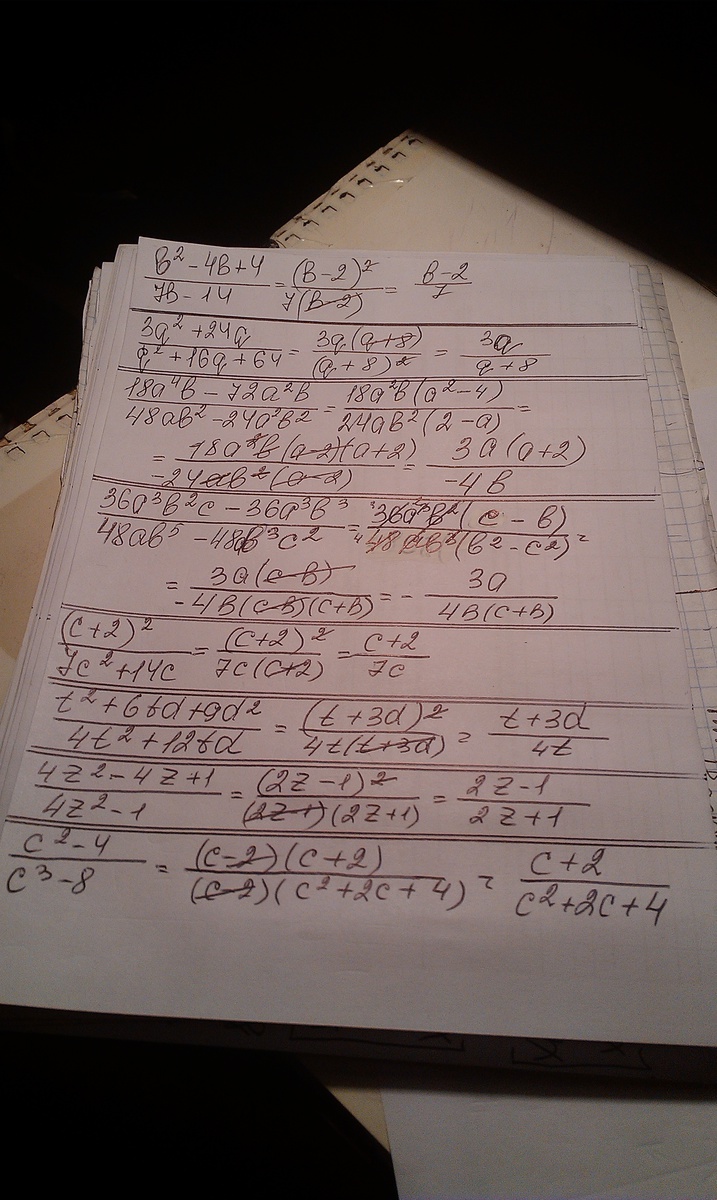 (b² - 4b + 4)/(7b - 14) = (b - 2)²/(7(b - 2)) = (b - 2)/7
(3a² + 24a)/(a² + 16a + 64) = 3a(a + 8)/(a + 8)² = 3a/(a + 8)
(18a⁴b - 72a²b)/(48ab² - 24a²b²) = 18a²b(a² - 4)/(24ab²(2 - a)) =
= 18a²b(a - 2)(a + 2)/(-24ab²(a - 2)) = 3a(a + 2)/(-4b)
(36a³b²c - 36a³b³)/(48ab⁵ - 48ab³c²) = 36a³b²(c - b)/(48ab³(b² - c²)) =
= 3a(c - b)/(-4b(c - b)(c + b)) = - 3a/(4b(c + b))
(c + 2)²/(7c² + 14c) = (c + 2)²/(7c(c + 2)) = (c + 2)/(7c)
(t² + 6td + 9d²)/(4t² + 12td) = (t + 3d)²/(4t(t + 3d)) = (t + 3d)/(4t)
(4z² - 4z + 1)/(4z² - 1) = (2z - 1)²/((2z - 1)(2z + 1)) = (2z - 1)/(2z + 1)
(c² - 4)/(c³ - 8) = (c - 2)(c + 2)/((c - 2)(c² + 2c + 4)) = (c + 2)/(c² + 2c + 4)